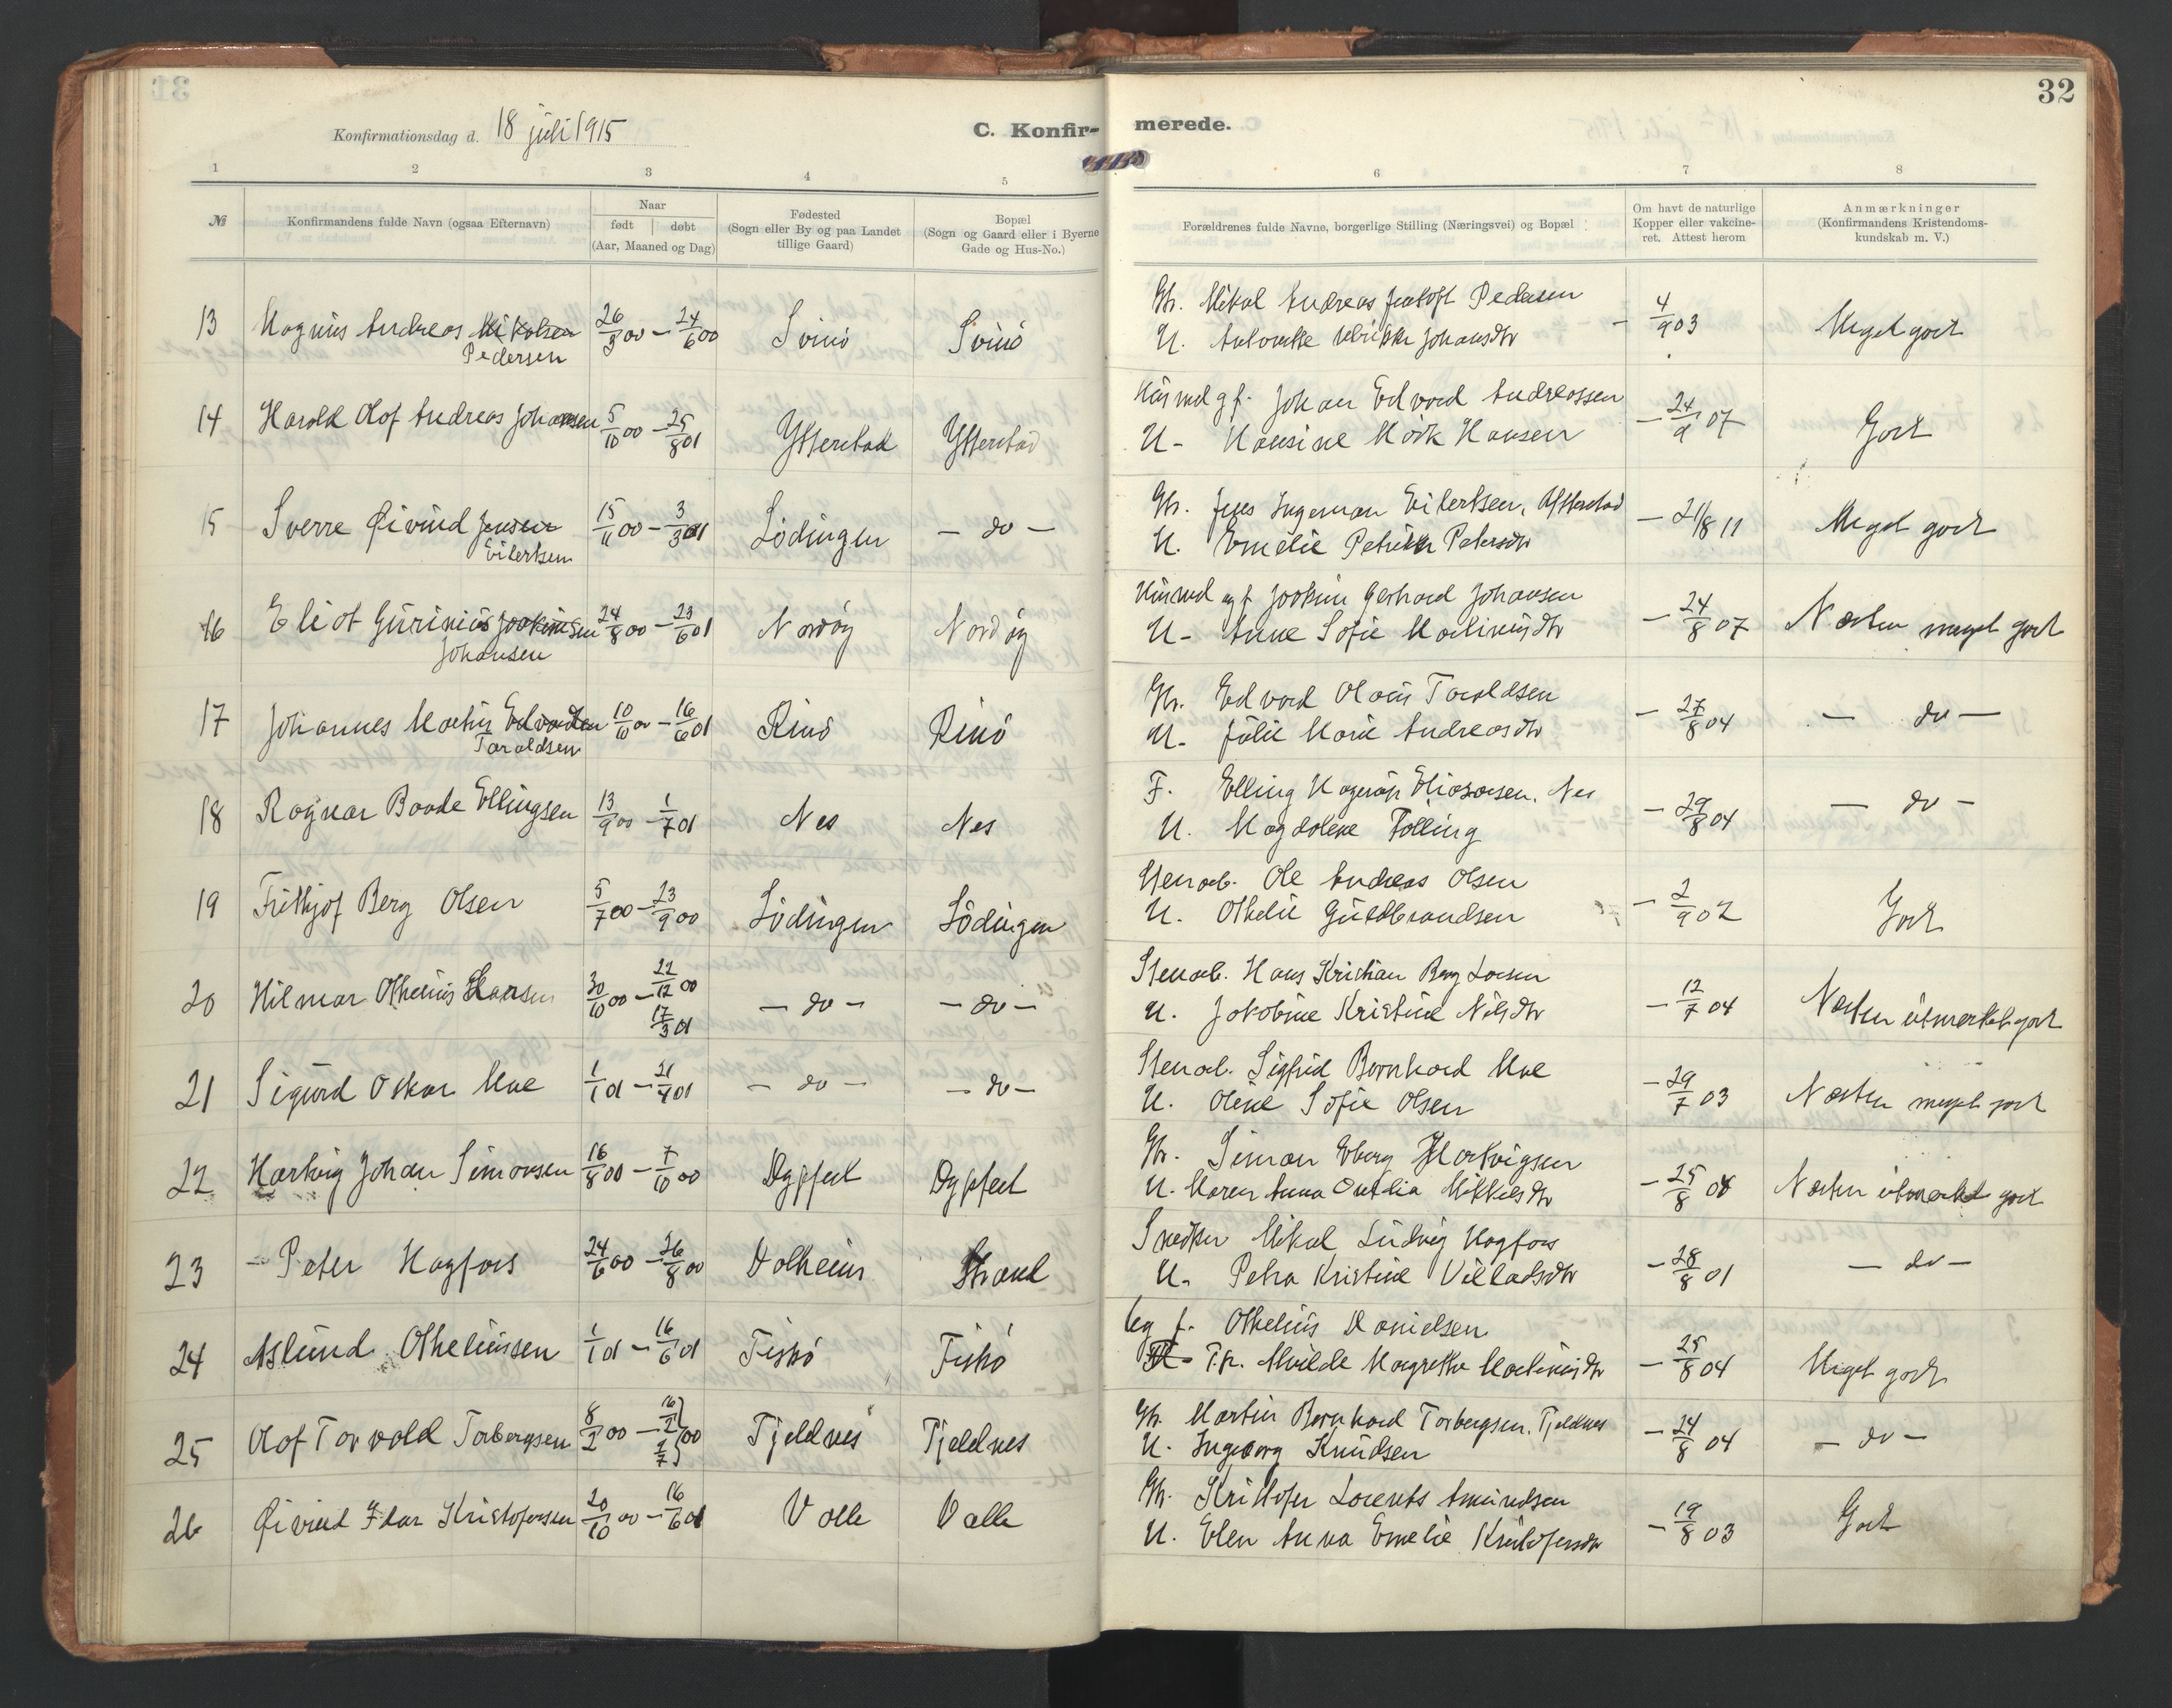 32
Konfirmationsdag d. 18 juli 1915
C. Konfir-
merede.
1 2 3 4 5 6 7 8
№
Konfirmandens fulde Navn (ogsaa Efternavn)
Naar
født døbt
(Aar, Maaned og Dag)
Fødested
(Sogn eller By og paa Landet
tillige Gaard)
Bopæl
(Sogn og Gaard eller i Byerne
Gade og Hus-No.)
Forældrenes fulde Navne, borgerlige Stilling (Næringsvei) og Bopæl
Om havt de naturlige
Kopper eller vakcine-
ret. Attest herom
Anmærkninger
(Konfirmandens Kristendoms-
kundskab m. V.)
13 Magnus Andreas Mikalsen 26/3 00 – 24/6 00 Svinö Svinö Gbr. Mikal Andreas Jentoft Pedersen – 4/9 03 Meget godt
Pedersen H. Antonette Ulrikke Johansdtr
14 Harald Olaf Andreas Johansen 5/10 00 – 25/8 01 Ytterstad Ytterstad Husmd g f. Johan Edvard Andreassen – 24/9 07 Godt
H - Hansine Mörk Hansen
15 Sverre Øivind Jensen 15/11 00 – 3/3 01 Lödingen – do – Gbr. Jens Ingeman Eilertsen, Ytterstad – 21/8 11 Meget godt
Eilertsen H. Emelie Petrikke Petersdtr
16 Eliot Gurinius Joakimsen 24/8 00 – 23/6 01 Nordög Nordög Husmd og f Joakim Gerhard Johansen – 24/8 07 Næsten meget godt
Johansen H - Anne Sofie Martinusdtr
17 Johannes Martin Edvardsen 10/10 00 – 16/6 01 Rinö Rinö Gbr. Edvard Olaus Taraldsen – 27/8 04 – do –
Taraldsen H - Julie Marie Andreasdtr
18 Ragnar Baade Ellingsen 13/9 00 – 1/7 01 Nes Nes F. Elling Hagerup Eliassen. Nes – 29/8 04 – do –
H. Magdalene Falling
19 Frithjof Berg Olsen 5/7 00 – 23/9 00 Lödingen Lödingen Stenarb. Ole Andreas Olsen – 2/9 02 Godt
H. Othelie Guldbrandsen
20 Hilmar Othelius Larsen 30/10 00 – 22/12 00 – do – – do – Stenarb. Hans Kristian Berg Larsen – 12/7 04 Næsten utmerket godt
17/3 01 H. Jakobine Kristine Nilsdtr
21 Sigurd Oskar Moe 1/1 01 – 21/4 01 – do – – do – Stenarb. Sigfrid Bernhard Moe – 29/7 03 Næsten meget godt
H. Oline Sofie Olsen
22 Hartvig Johan Simonsen 16/8 00 – 7/10 00 Dypfest Dypfest Gbr. Simon Eberg Hartvigsen – 25/8 04 Næsten utmerket godt
H. Maren Anna Ovedia Mikkelsdtr
23 – Peter Hagfors 24/6 00 – 26/8 00 Valheim Strand Snedker Mikal Ludvig Hagfors – 28/8 01 – do –
H. Petra Kristine Villadsdtr
24 Aslund Otheliussen 1/1 01 – 16/6 01 Fiskö Fiskö Ug f. Othelius Danielsen – 25/8 04 Meget godt
T.p. Alvilde Margrethe Martinusdtr
25 Olaf Torvald Torbergsen 8/2 00 – 16/2 00 Tjeldnes Tjeldnes Gbr. Martin Bernhard Torbergsen. Tjeldnes – 24/8 04 – do –
2/7 H. Ingeborg Knudsen
26 Øivind Idar Kristofersen 20/10 00 – 16/6 01 Valle Valle Gbr. Kristofer Lorents Amundsen – 19/8 03 Godt
H. Elen Anna Emelie Kristofersdtr